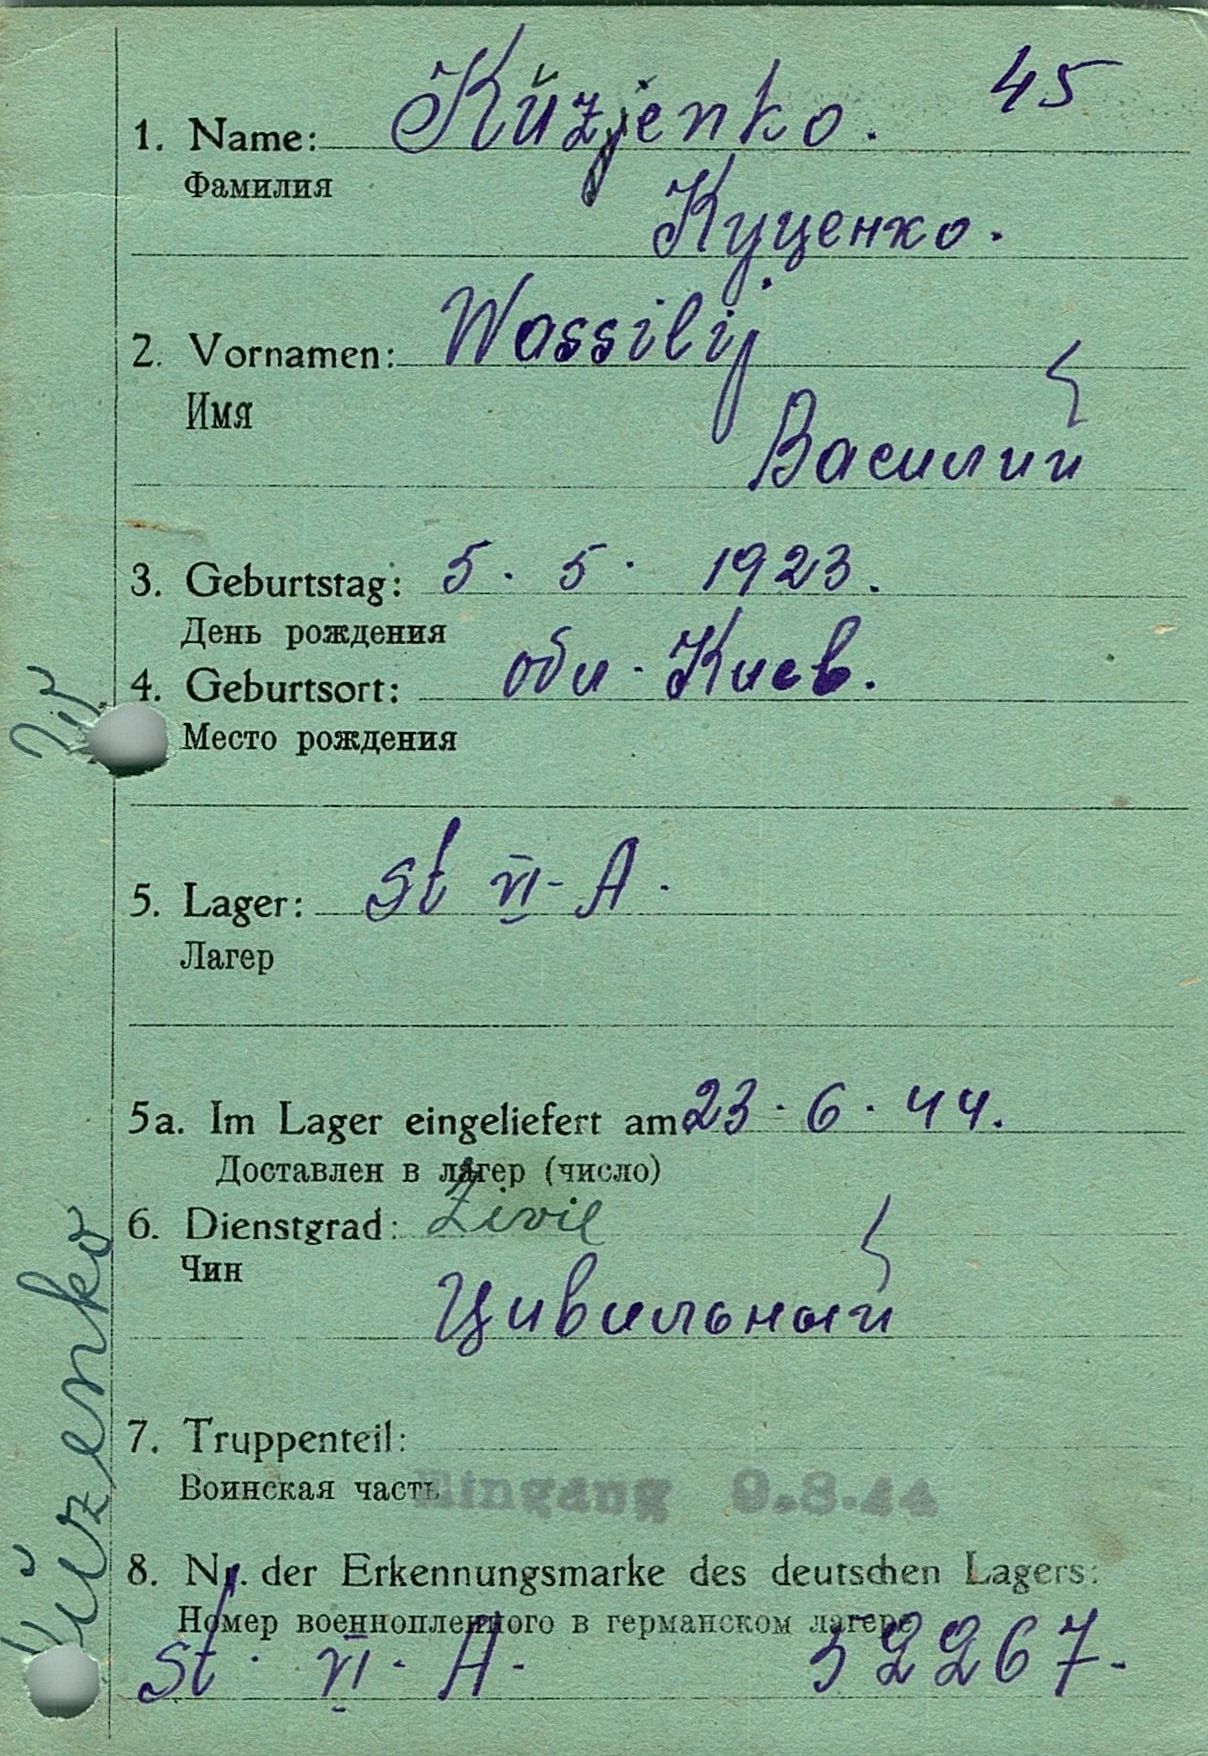 45
1. Name: Kŭzjenko.
Фамилия
Куценко.
2. Vornamen: Wassilij
Имя
Василий
3. Geburtstag: 5. 5. 1923.
День рождения
4. Geburtsort: обл. Киев.
Место рождения
5. Lager: St VI-A.
Лагер
5a. Im Lager eingeliefert am 23.6.44.
Доставлен в лагер (число)
6. Dienstgrad: Zivil
Чин
Цивильный
7. Truppenteil:
Воинская часть
Eingang 9.8.44
8. Nr. der Erkennungsmarke des deutschen Lagers:
Номер военнопленного в германском лагере
St. VI. A. 52267.
Kŭzenko